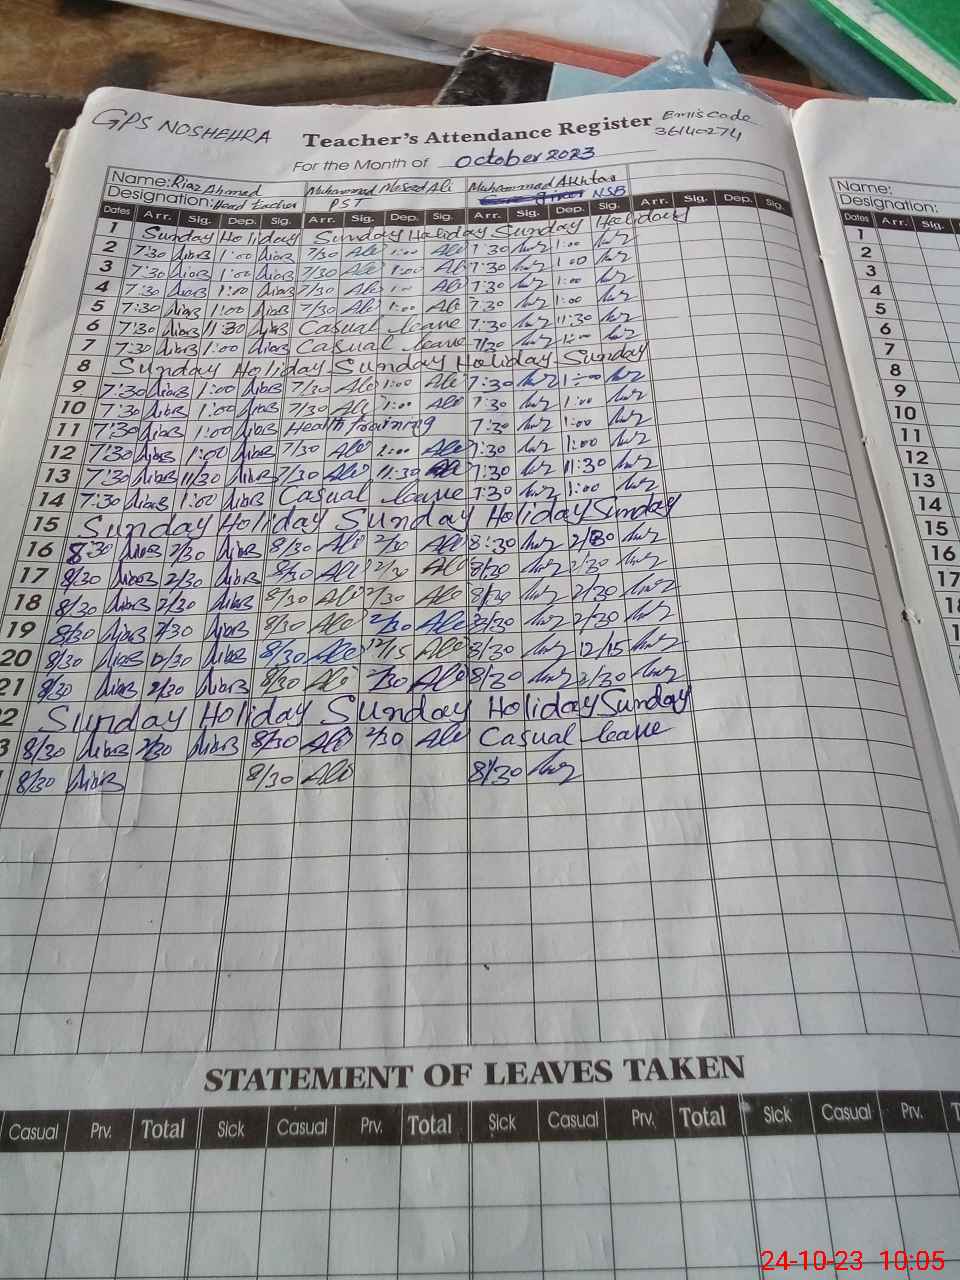 GPS NOSHEHRA Teacher's Attendance Register Emis code
36140274
For the Month of October 2023
Name: Riaz Ahmed Muhammad Ali Muhammad Akhtar
Designation: Head teacher PST NSB
Dates Arr. Sig. Dep. Sig. Arr. Sig. Dep. Sig. Arr. Sig. Dep. Sig. Arr. Sig. Dep. Sig.
1 Sunday Holiday Sunday Holiday Sunday Holiday
2 7:30 1:00 7/30 Ali 1:00 Ali 7:30 1:00
3 7:30 1:00 7/30 Ali 1:00 Ali 7:30 1:00
4 7:30 1:00 7/30 Ali 1:00 Ali 7:30 1:00
5 7:30 1:00 7/30 Ali 1:00 Ali 7:30 1:00
6 7:30 11:30 Casual leave 7:30 11:30
7 7:30 1:00 Casual leave 7/30 1:00
8 Sunday Holiday Sunday Holiday Sunday
9 7:30 1:00 7/30 Ali 1:00 Ali 7:30 1:00
10 7:30 1:00 7/30 Ali 1:00 Ali 7:30 1:00
11 7:30 1:00 Health training 7:30 1:00
12 7:30 1:00 7/30 Ali 1:00 Ali 7:30 1:00
13 7:30 11/30 7/30 Ali 11:30 Ali 7:30 11:30
14 7:30 1:00 Casual leave 7:30 1:00
15 Sunday Holiday Sunday Holiday Sunday
16 8:30 2/30 8/30 Ali 2/30 Ali 8:30 2/30
17 8/30 2/30 8/30 Ali 2/30 Ali 8/30 2/30
18 8/30 2/30 8/30 Ali 2/30 Ali 8/30 2/30
19 8/30 2/30 8/30 Ali 2/30 Ali 8/30 2/30
20 8/30 12/30 8/30 Ali 12/15 Ali 8/30 12/15
21 8/30 2/30 8/30 Ali 2/30 Ali 8/30 2/30
2 Sunday Holiday Sunday Holiday Sunday
3 8/30 2/30 8/30 Ali 2/30 Ali Casual leave
8/30 8/30 Ali 8/30
STATEMENT OF LEAVES TAKEN
Casual Prv. Total Sick Casual Prv. Total Sick Casual Prv. Total Sick Casual Prv.
Name:
Designation:
Dates Arr. Sig.
1
2
3
4
5
6
7
8
9
10
11
12
13
14
15
16
17
24-10-23 10:05